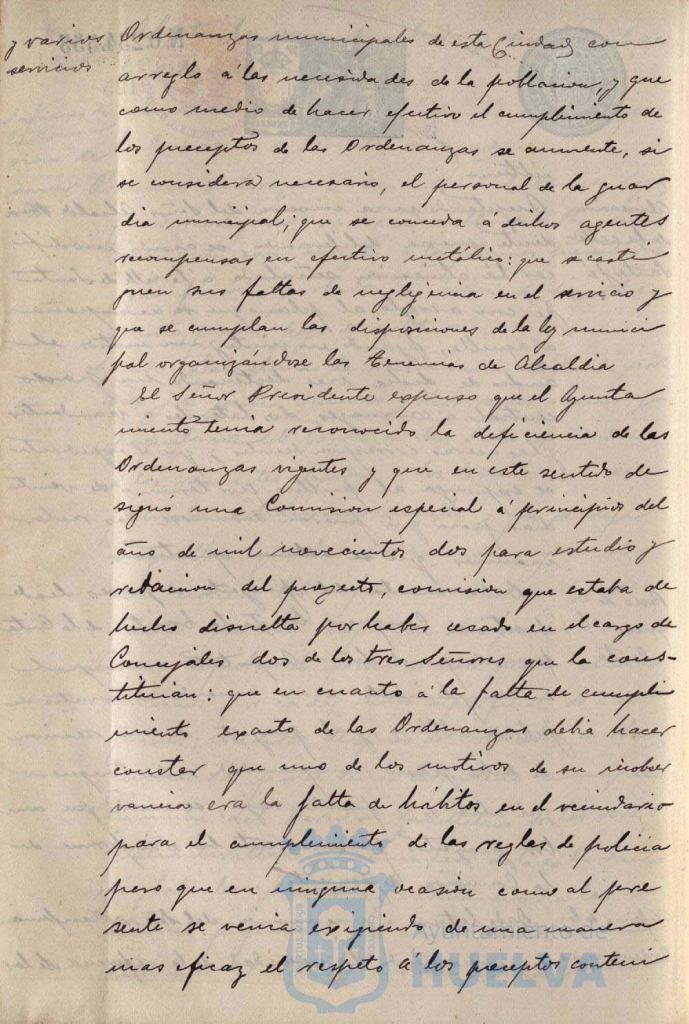 y varios
servicios
Ordenanzas municipales de esta Ciudad con
arreglo á las necesidades de la poblacion, y que
como medio de hacer efectivo el cumplimiento de
los preceptos de las Ordenanzas se aumente, si
se considera necesario, el personal de la guar
dia municipal; que se conceda á dichos agentes
recompensas en efectivo metálico: que se casti
guen sus faltas de negligencia en el servicio y
que se cumplan las disposiciones de la ley munici
pal organizándose las Tenencias de Alcaldia
El Señor Presidente expuso que el Ayunta
miento tenia reconocido la deficiencia de las
Ordenanzas vigentes y que en este sentido de
signó una Comision especial á principios del
año de mil novecientos dos para estudio y
redaccion del proyecto, comision que estaba de
hecho disuelta por haber cesado en el cargo de
Concejales dos de los tres Señores que la cons-
tituian: que en cuanto á la falta de cumpli
miento exacto de las Ordenanzas debia hacer
constar que uno de los motivos de su inobser
vancia era la falta de hábitos en el vecindario
para el cumplimiento de las reglas de policia
pero que en ninguna ocasión como al pre
sente se venia exigiendo de una manera
mas eficaz el respeto á los preceptos conteni
Ayuntamiento de
HUELVA